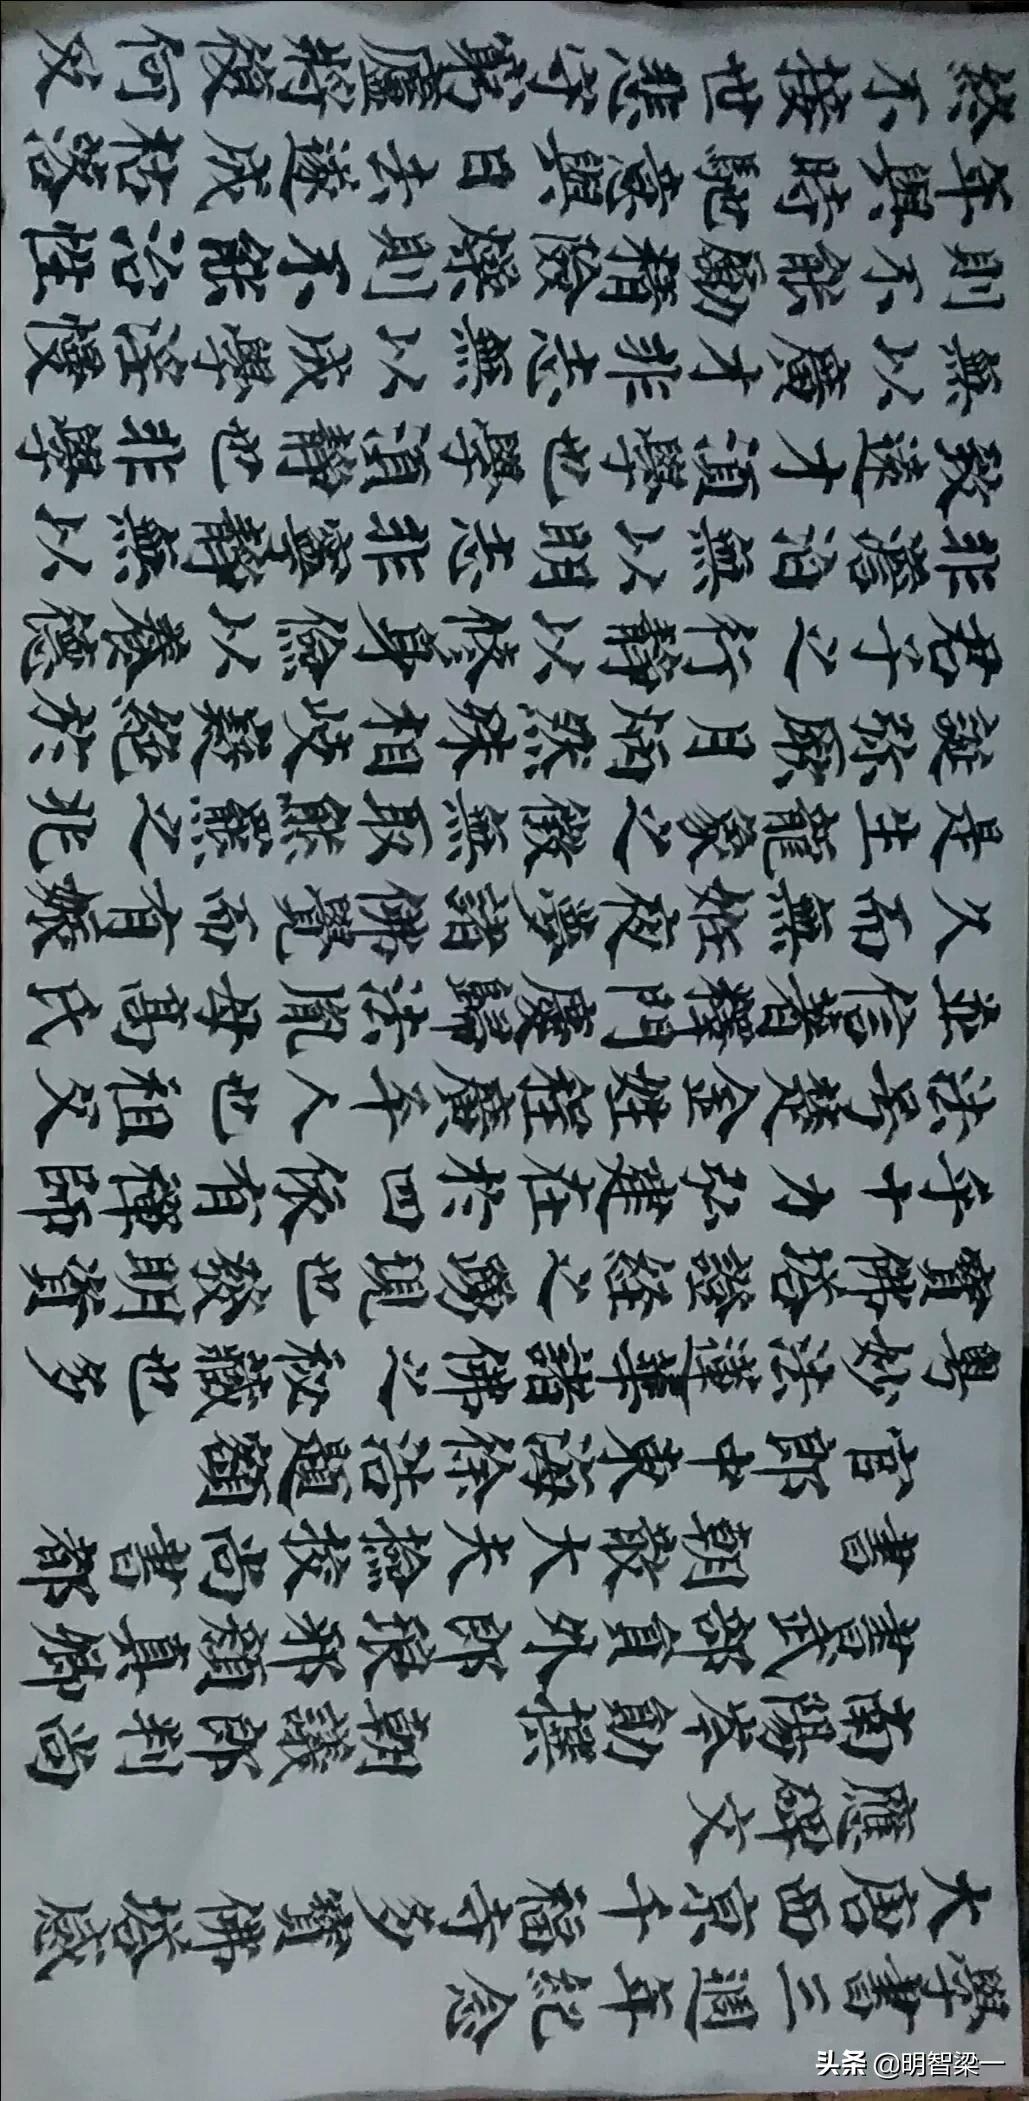 學書三週年紀念
大唐西京千福寺多寶佛塔感
應碑文
南陽岑勛撰 朝議郎判尚
書武部員外郎琅邪顏真卿
書 朝散大夫檢校尚書都
官郎中東海徐浩題額
粵妙法蓮華諸佛之秘藏也多
寶佛塔證經之踴現也發明資
乎十力弘建在於四依有禪師
法號楚金姓程廣平人也祖父
並信著釋門慶歸法胤母高氏
久而無妊夜夢諸佛覺而有娠
是生龍象之徵無取熊羆之兆
誕彌厥月炳然殊相岐嶷絕於
君子之行靜以修身儉以養德
非澹泊無以明志非寧靜無以
致遠才須學也學須靜也非學
無以廣才非志無以成學淫慢
則不能勵精險躁則不能治性
年與時馳意與日去遂成枯落
終不接世悲守窮廬將復何及
头条 @明智梁一